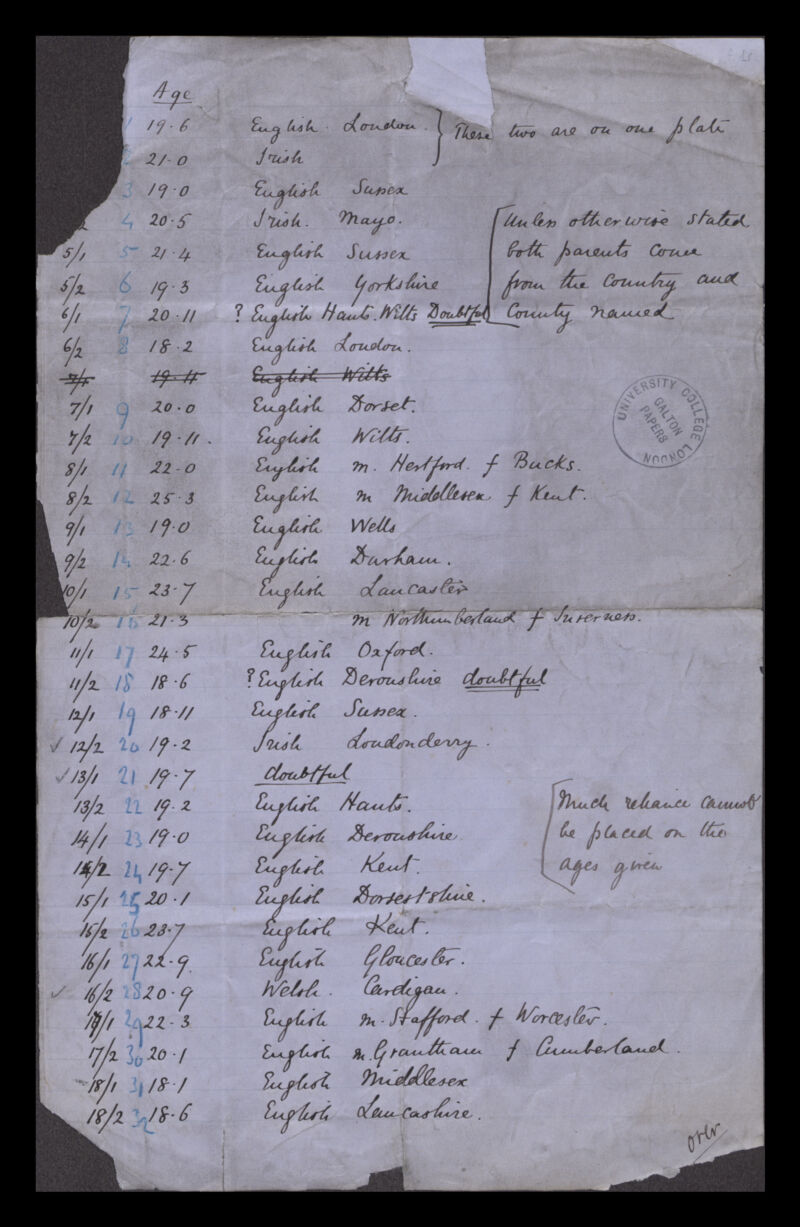 Age
1 19.6 English. London. } These two are on one plate
2 21.0 Irish
3 19.0 English Sussex
4 20.5 Irish. Mayo. [Unless otherwise stated
5/1 5 21.4 English Sussex both parents come
5/2 6 19.3 English Yorkshire from the country and
6/1 7 20.11 ? English Hants. Wilts Doubtful County named
6/2 8 18.2 English London.
7/1 19.11 English Wilts
7/1 9 20.0 English Dorset.
7/2 10 19.11. English Wilts.
8/1 11 22.0 English m. Hertford. f Bucks.
8/2 12 25.3 English m Middlesex f Kent.
9/1 13 19.0 English Wells
9/2 14 22.6 English Durham.
10/1 15 23.7 English Lancaster
10/2 16 21.3 m Northumberland f Inverness.
11/1 17 24.5 English Oxford.
11/2 18 18.6 ? English Devonshire doubtful
12/1 19 18.11 English Sussex.
✓ 12/2 20 19.2 Irish Londonderry.
✓ 13/1 21 19.7 doubtful
13/2 22 19.2 English Hants. [Much reliance cannot
14/1 23 19.0 English Devonshire be placed on the
14/2 24 19.7 English Kent. ages given
15/1 25 20.1 English Dorsestshire.
15/2 26 23.7 English Kent.
16/1 27 22.9. English Gloucester.
✓ 16/2 28 20.9 Welsh. Cardigan.
17/1 29 22.3 English m. Stafford. f Worcester.
17/2 30 20.1 English m. Grantham f Cumberland.
18/1 31 18.1 English Middlesex
18/2 32 18.6 English Lancashire.
over
UNIVERSITY COLLEGE LONDON
GALTON PAPERS